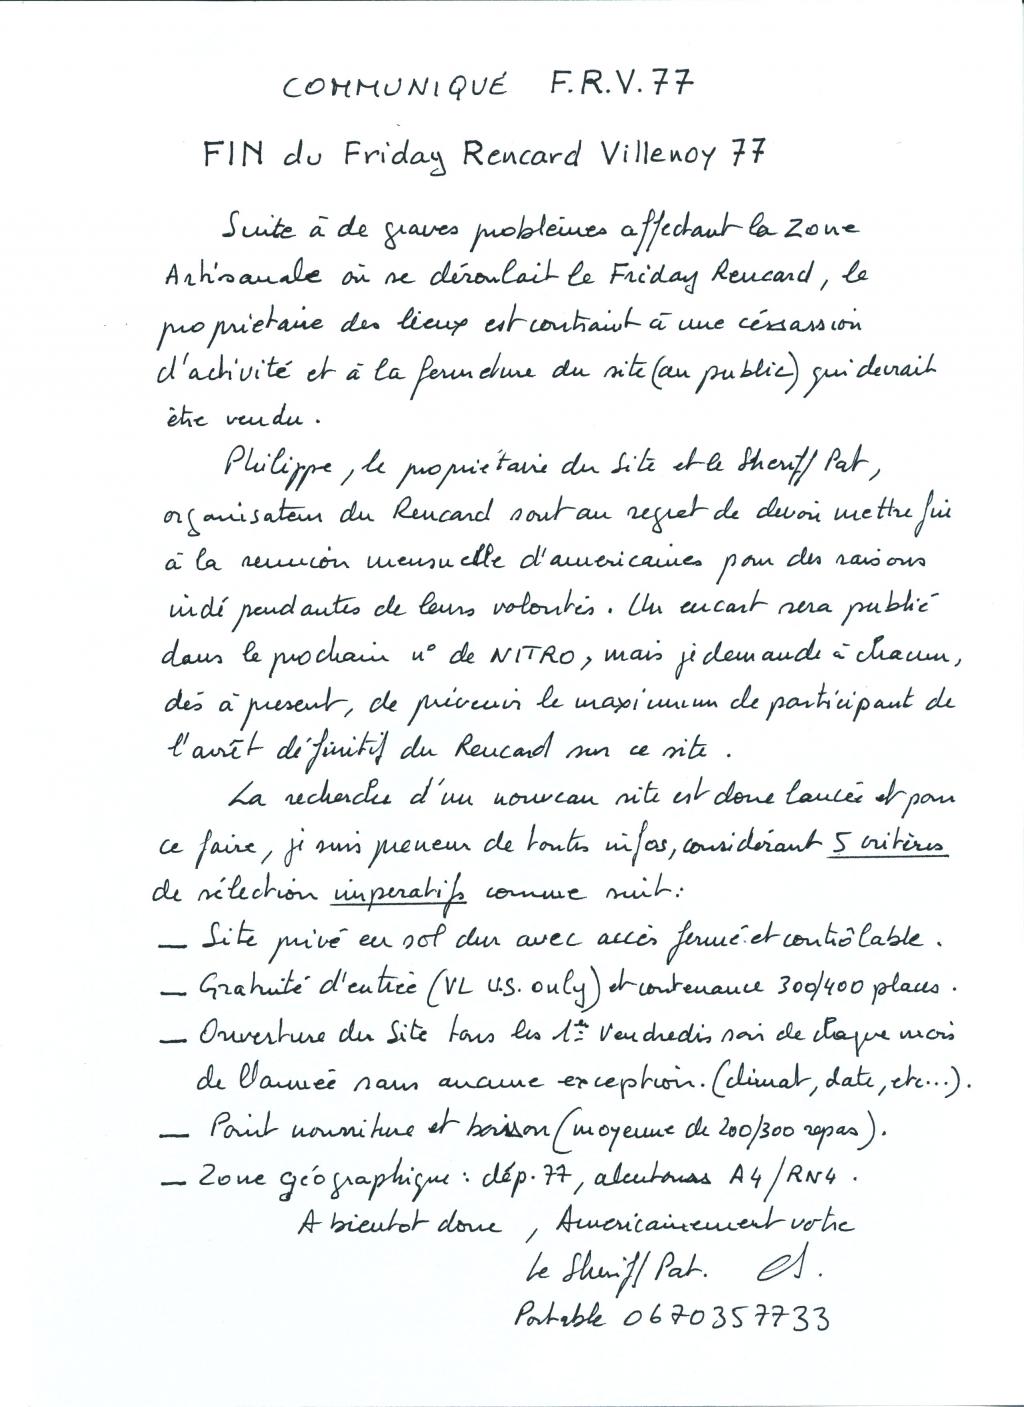 COMMUNIQUÉ F.R.V.77
FIN du Friday Rencard Villenoy 77
Suite à de graves problèmes affectant la Zone
Artisanale où se déroulait le Friday Rencard, le
propriétaire des lieux est contraint à une céssassion
d'activité et à la fermeture du site (au public) qui devrait
être vendu.
Philippe, le propriétaire du Site et le Sheriff Pat,
organisateur du Rencard sont au regret de devoir mettre fin
à la reunion mensuelle d'americaines pour des raisons
indépendantes de leurs volontés. Un encart sera publié
dans le prochain n° de NITRO, mais je demande à chacun,
dés à présent, de prévenir le maximum de participant de
l'arrêt définitif du Rencard sur ce site.
La recherche d'un nouveau site est donc lancée et pour
ce faire, je suis preneur de toutes infos, considérant 5 critères
de sélection imperatifs comme suit:
— Site privé en sol dur avec accès fermé et contrôlable.
— Gratuité d'entrée (VL U.S. only) et contenance 300/400 places.
— Ouverture du Site tous les 1er Vendredis soir de chaque mois
de l'année sans aucune exception. (climat, date, etc...).
— Point nourriture et boisson (moyenne de 200/300 repas).
— Zone géographique: dép. 77, alentours A4/RN4.
A bientot donc, Americainement votre
Le Sheriff Pat.
Portable 0670357733